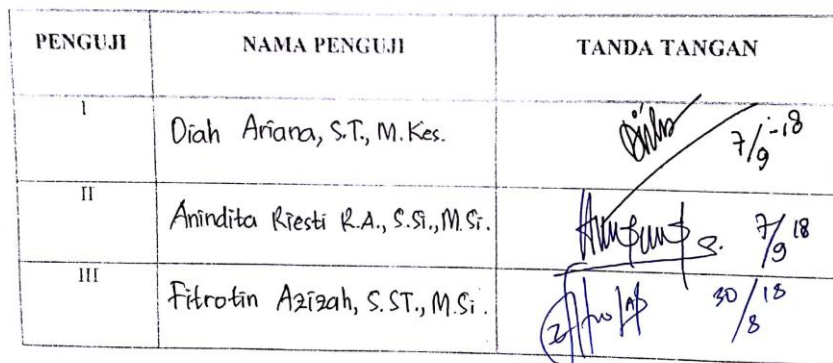 PENGUJI NAMA PENGUJI TANDA TANGAN
I Diah Ariana, S.T., M.Kes. 7/9-18
II Anindita Riesti R.A., S.Si., M.Si. 7/9 18
III Fitrotin Azizah, S.ST., M.Si. 30/8 18